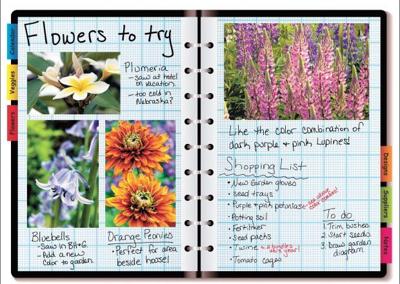 Flowers to try
Calendar
Veggies
Flowers
Plumeria
- saw at hotel
on vacation.
- too cold in
Nebraska?
Bluebells
- Saw in BH+G.
- Add a new
color to garden.
Orange Peonies
- Perfect for area
beside house!
Like the color combination of
dark purple & pink Lupines!
Shopping List
• New Garden gloves
• Seed trays
• Purple & pink petunias
• Potting soil
• Fertilizer
• Seed packs
• Twine
• Tomato cages
To do
1. Trim bushes
2. Start seeds
3. Draw garden
diagram
Designs
Suppliers
Notes